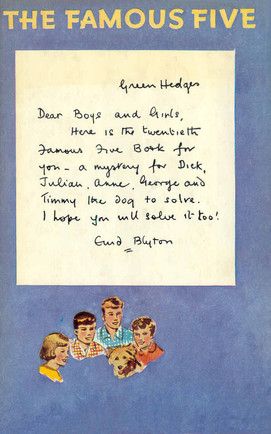 THE FAMOUS FIVE
Green Hedges
Dear Boys and Girls,
Here is the twentieth
Famous Five Book for
you – a mystery for Dick,
Julian, Anne, George and
Timmy the dog to solve.
I hope you will solve it too!
Enid Blyton